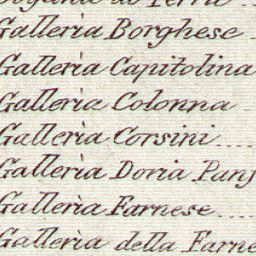 Dogana di Terra
Galleria Borghese
Galleria Capitolina
Galleria Colonna
Galleria Corsini
Galleria Doria Panf
Galleria Farnese
Galleria della Farne